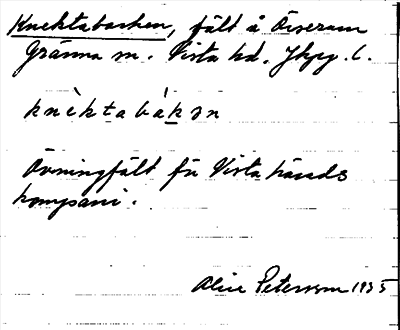 Knektabacken, fält å Örserum
Gränna sn. Vista hd. Jkpg. l.
knèktabàkən
Övningfält för Vista härads
kompani.
Alice Petersson 1935